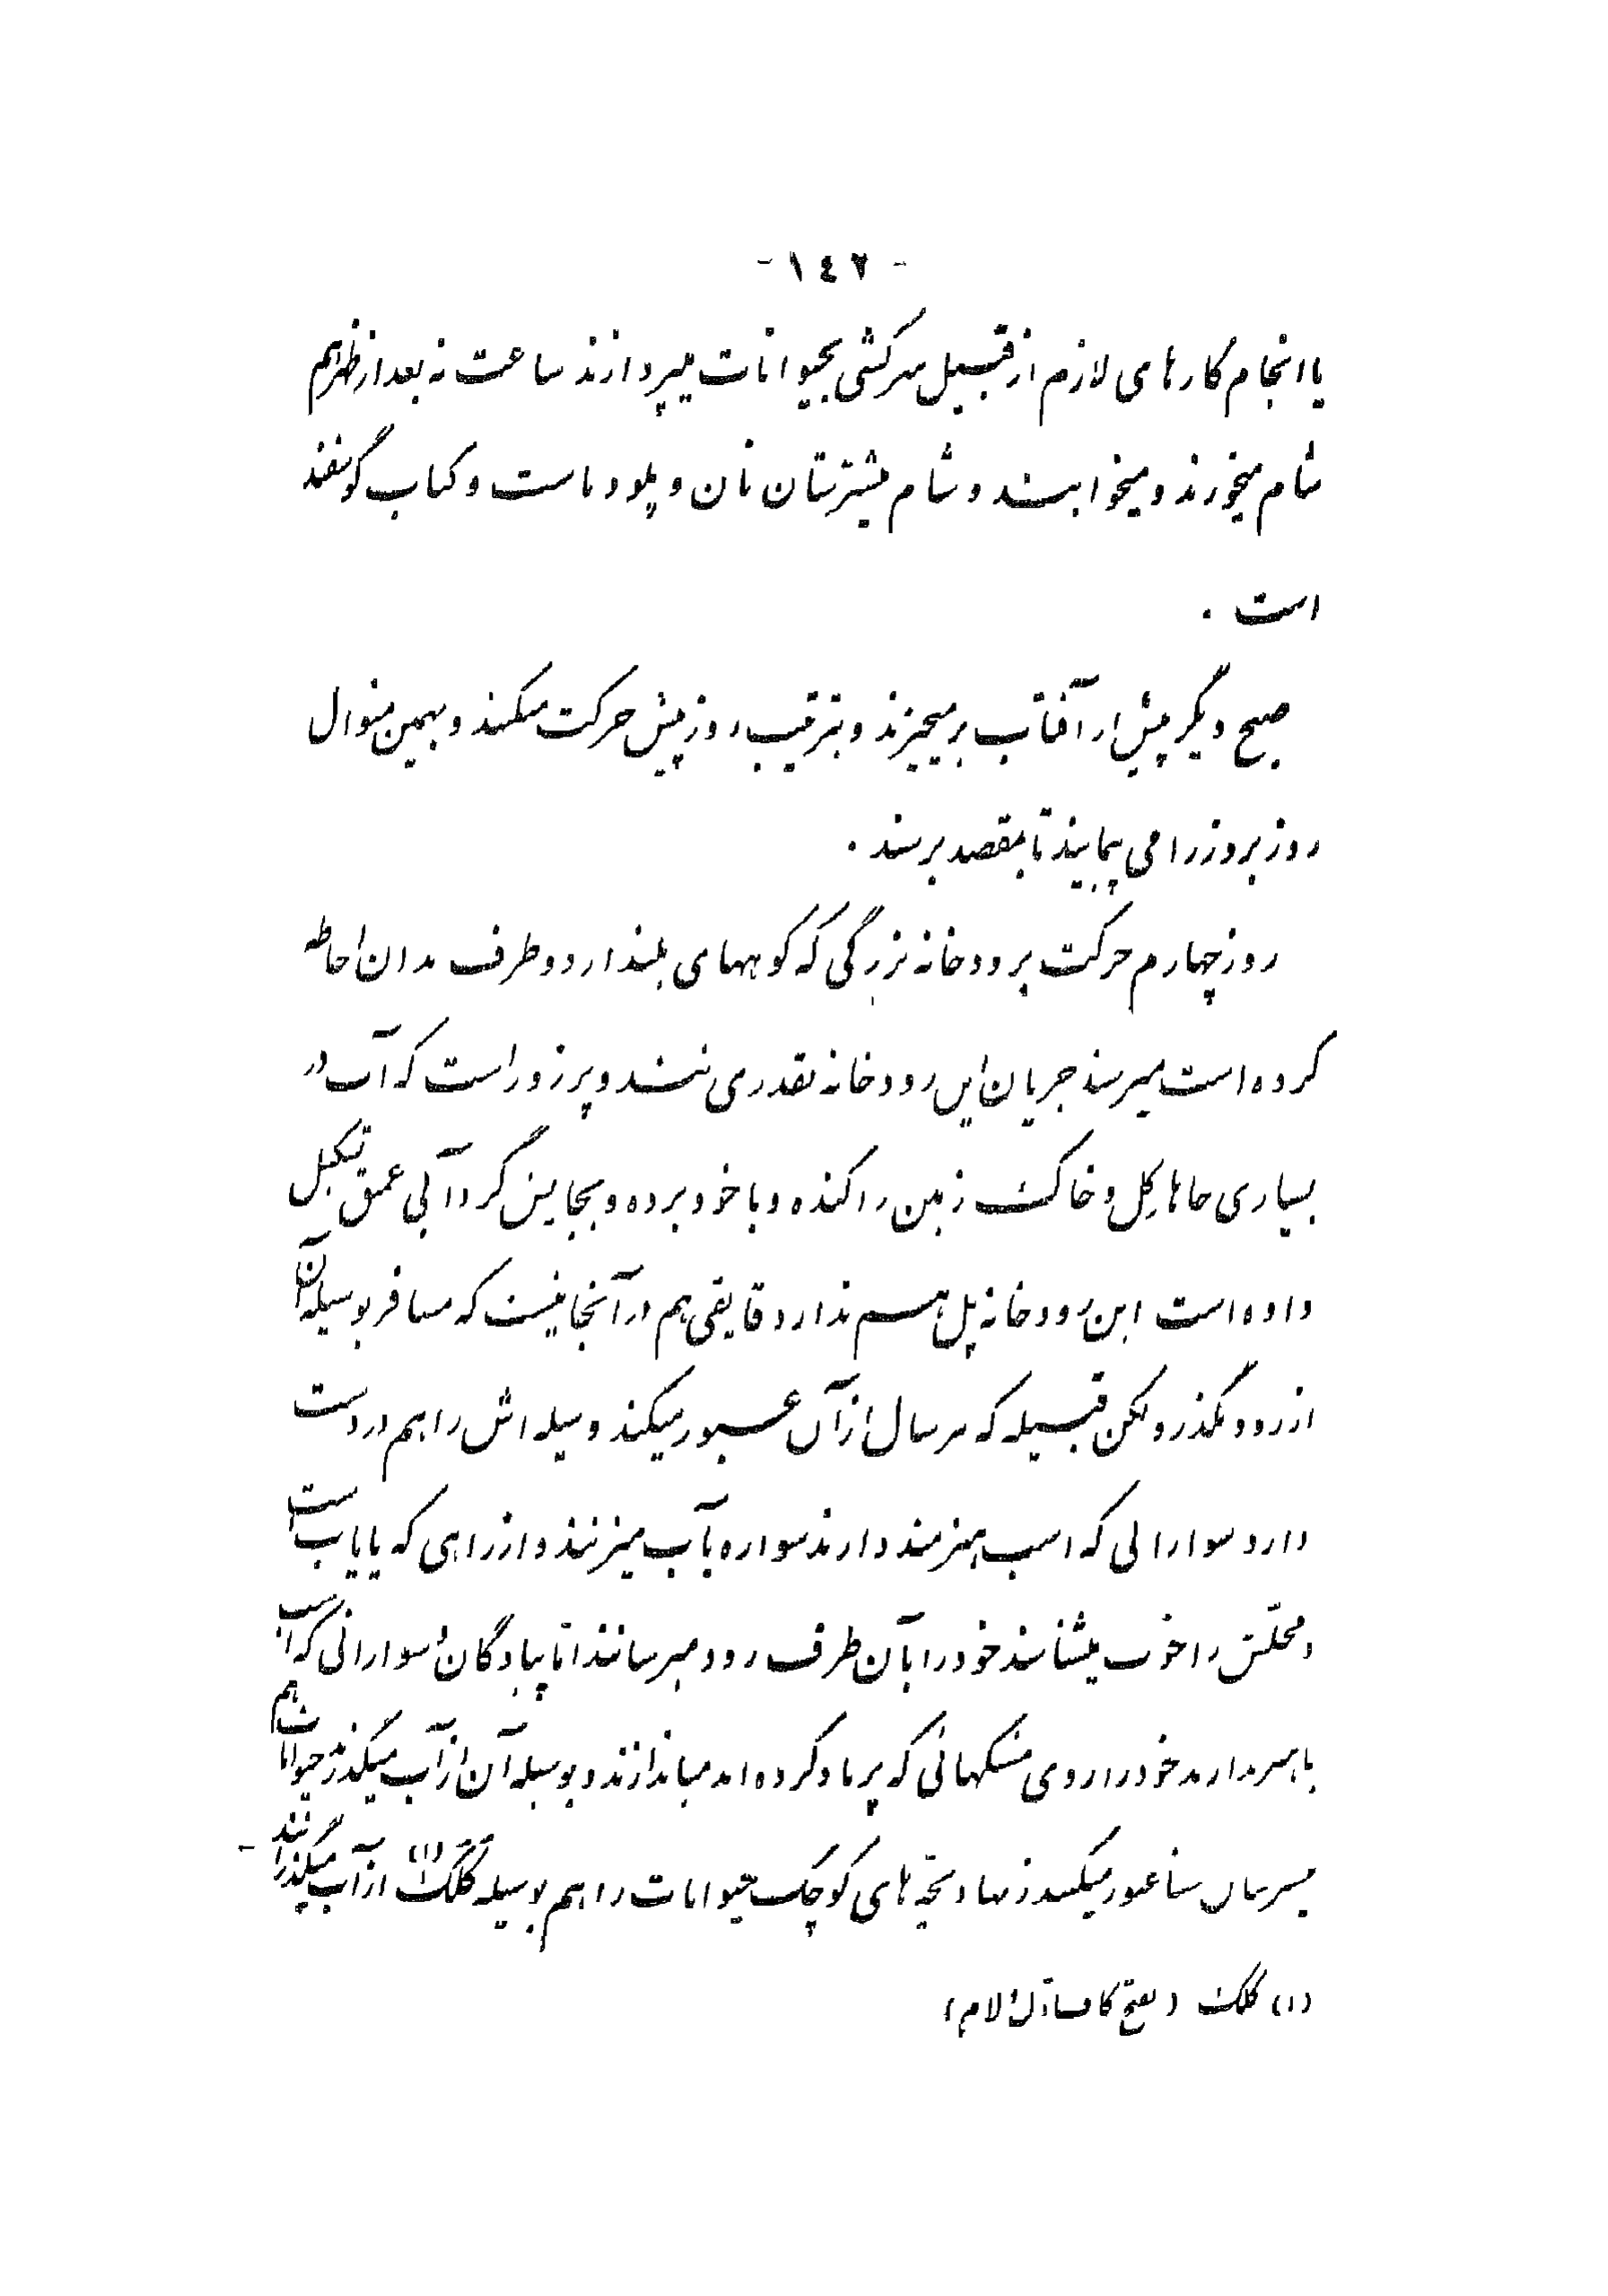 - ۱٤۲ -
یا انجام کارهای لازم از قبیل سرکشی بحیوانات میپردازند ساعت نه بعد از ظهر هم
شام میخورند و میخوابند و شام بیشترشان نان و پلو و ماست و کباب گوسفند
است .
صبح دیگر پیش از آفتاب برمیخیزند و بترتیب روز پیش حرکت میکنند و بهمین منوال
روز بروز راه می پیمایند تا بمقصد برسند .
روز چهارم حرکت برودخانه بزرگی که کوههای بلند از دو طرف بدان احاطه
کرده است میرسند جریان این رودخانه بقدری تند و پر زور است که آب در
بسیاری جاها گل و خاک زمین را کنده و با خود برده و بجایش گردآبی عمیق تشکیل
داده است این رودخانه پل هم ندارد قایقی هم در آنجا نیست که مسافر بوسیله آن
از رود بگذرد ولکن قبیله که هر سال از آن عبور میکند وسیله اش را هم در دست
دارد سوارانی که اسب هنرمند دارند سواره بآب میزنند و از راهی که پایاب است
و محلش را خوب میشناسند خود را بآن طرف رود میرسانند اما پیادگان و سوارانی که اسب
با هنر ندارند خود را روی مشکهائی که پر باد کرده اند میاندازند و بوسیله آن از آب میگذرند حیوانات هم
بیشترشان بشنا عبور میکنند زنها و بچه های کوچک حیوانات را هم بوسیله کلک (۱) از آب میگذرانند -
(۱) کلک ( بفتح کاف اول و لام )